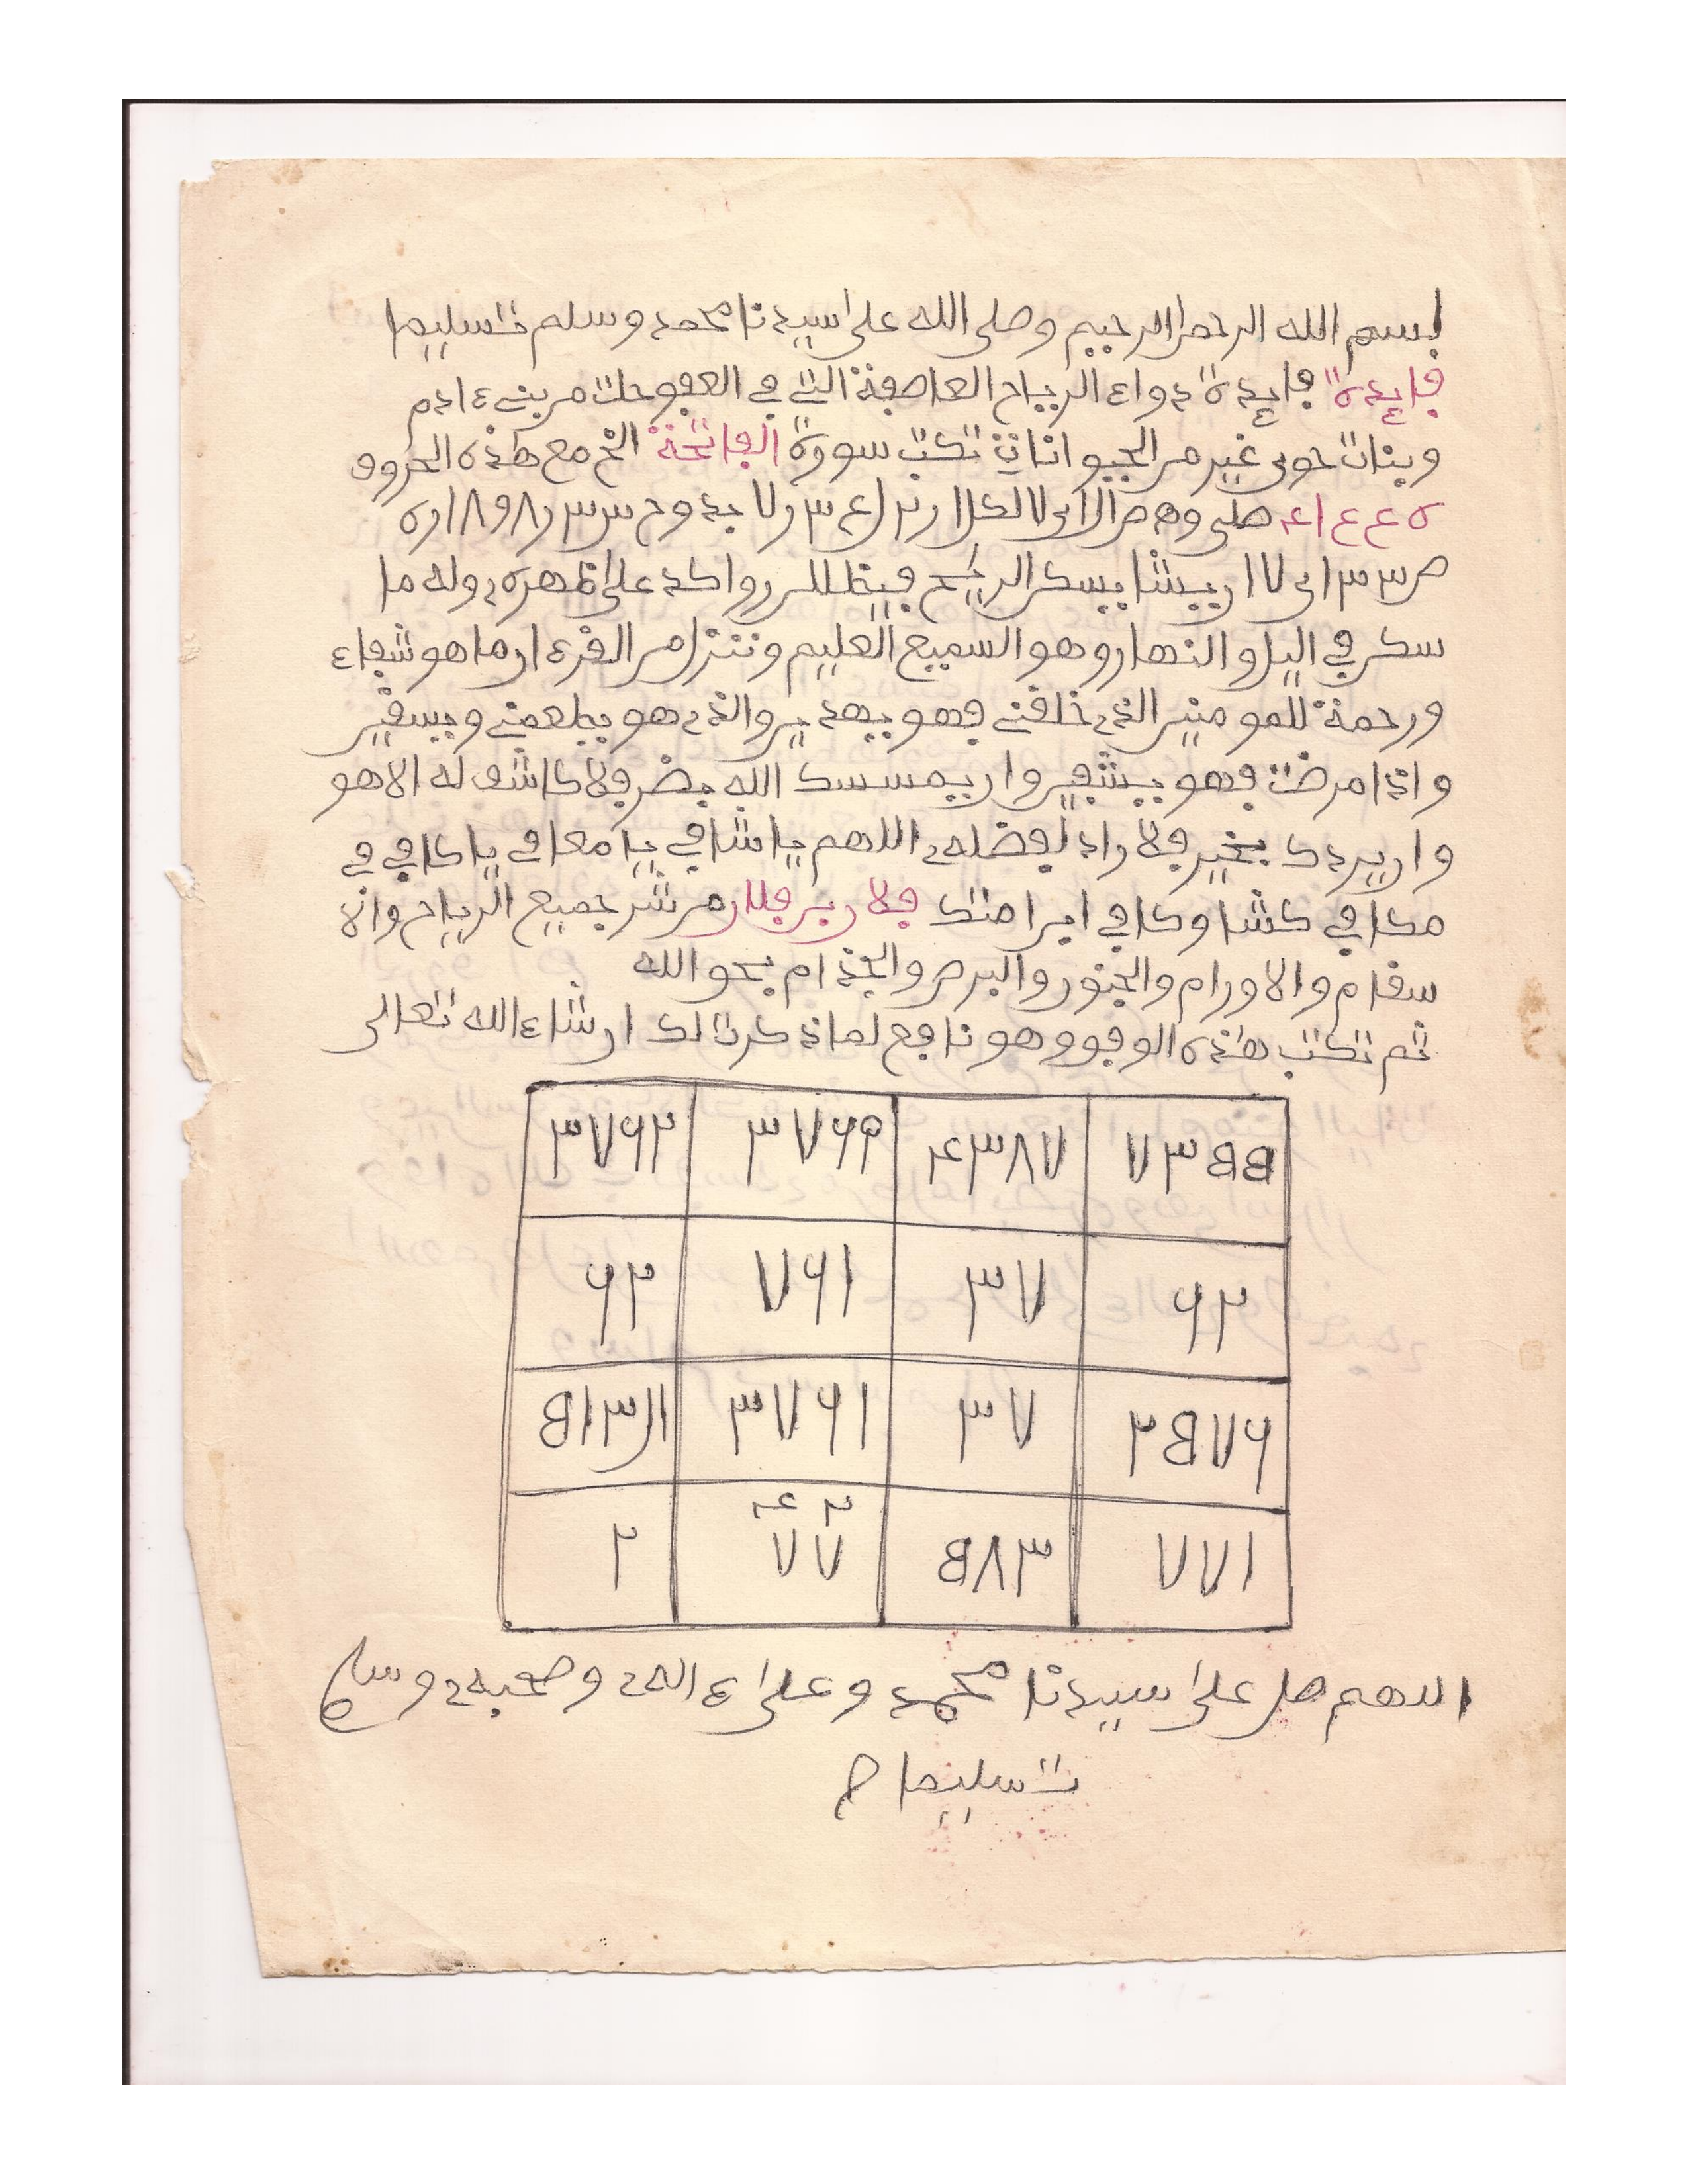 بسم الله الرحمن الرحيم وصلى الله على سيدنا محمد وسلم تسليما
فايدة فايدة دواء الرياح العاصفة التي في العفوحات من بني ءادم
وبنات حوى غير من الحيوانات تكتب سورة الفاتحة الخ مع هذه الحروف
ه ع ع ا ع
ان يشا يسكن الريح فيظللن رواكد على ظهره وله ما
سكن في اليل والنهار وهو السميع العليم وننزل من القرءان ما هو شفاء
ورحمة للمومنين الذي خلقني فهو يهدين والذي هو يطعمني ويسقين
واذا مرضت فهو يشفين وان يمسسك الله بضر فلا كاشف له الا هو
وان يردك بخير فلا راد لفضله اللهم يا شافي يا معافي يا كافي في
مكافي كشا وكافي ابر امتك من شر جميع الرياح والا
سقام والاورام والجنون والبرص والجذام بحق الله
ثم تكتب هذه الوفق وهو نافع لما ذكرت لك ان شاء الله تعالى
٣٧٦٢ ٣٧٦٩ ٤٣٨٧ ٧٣٥٥
٦٢ ٧٦١ ٣٧ ٦٢
٥١٣١١ ٣٧٦١ ٣٧ ٢٥٧٦
٢ ٤٢ ٧٧ ٥٨٣ ٧٧١
اللهم صل على سيدنا محمد وعلى ءاله وصحبه وسلم
تسليما ح